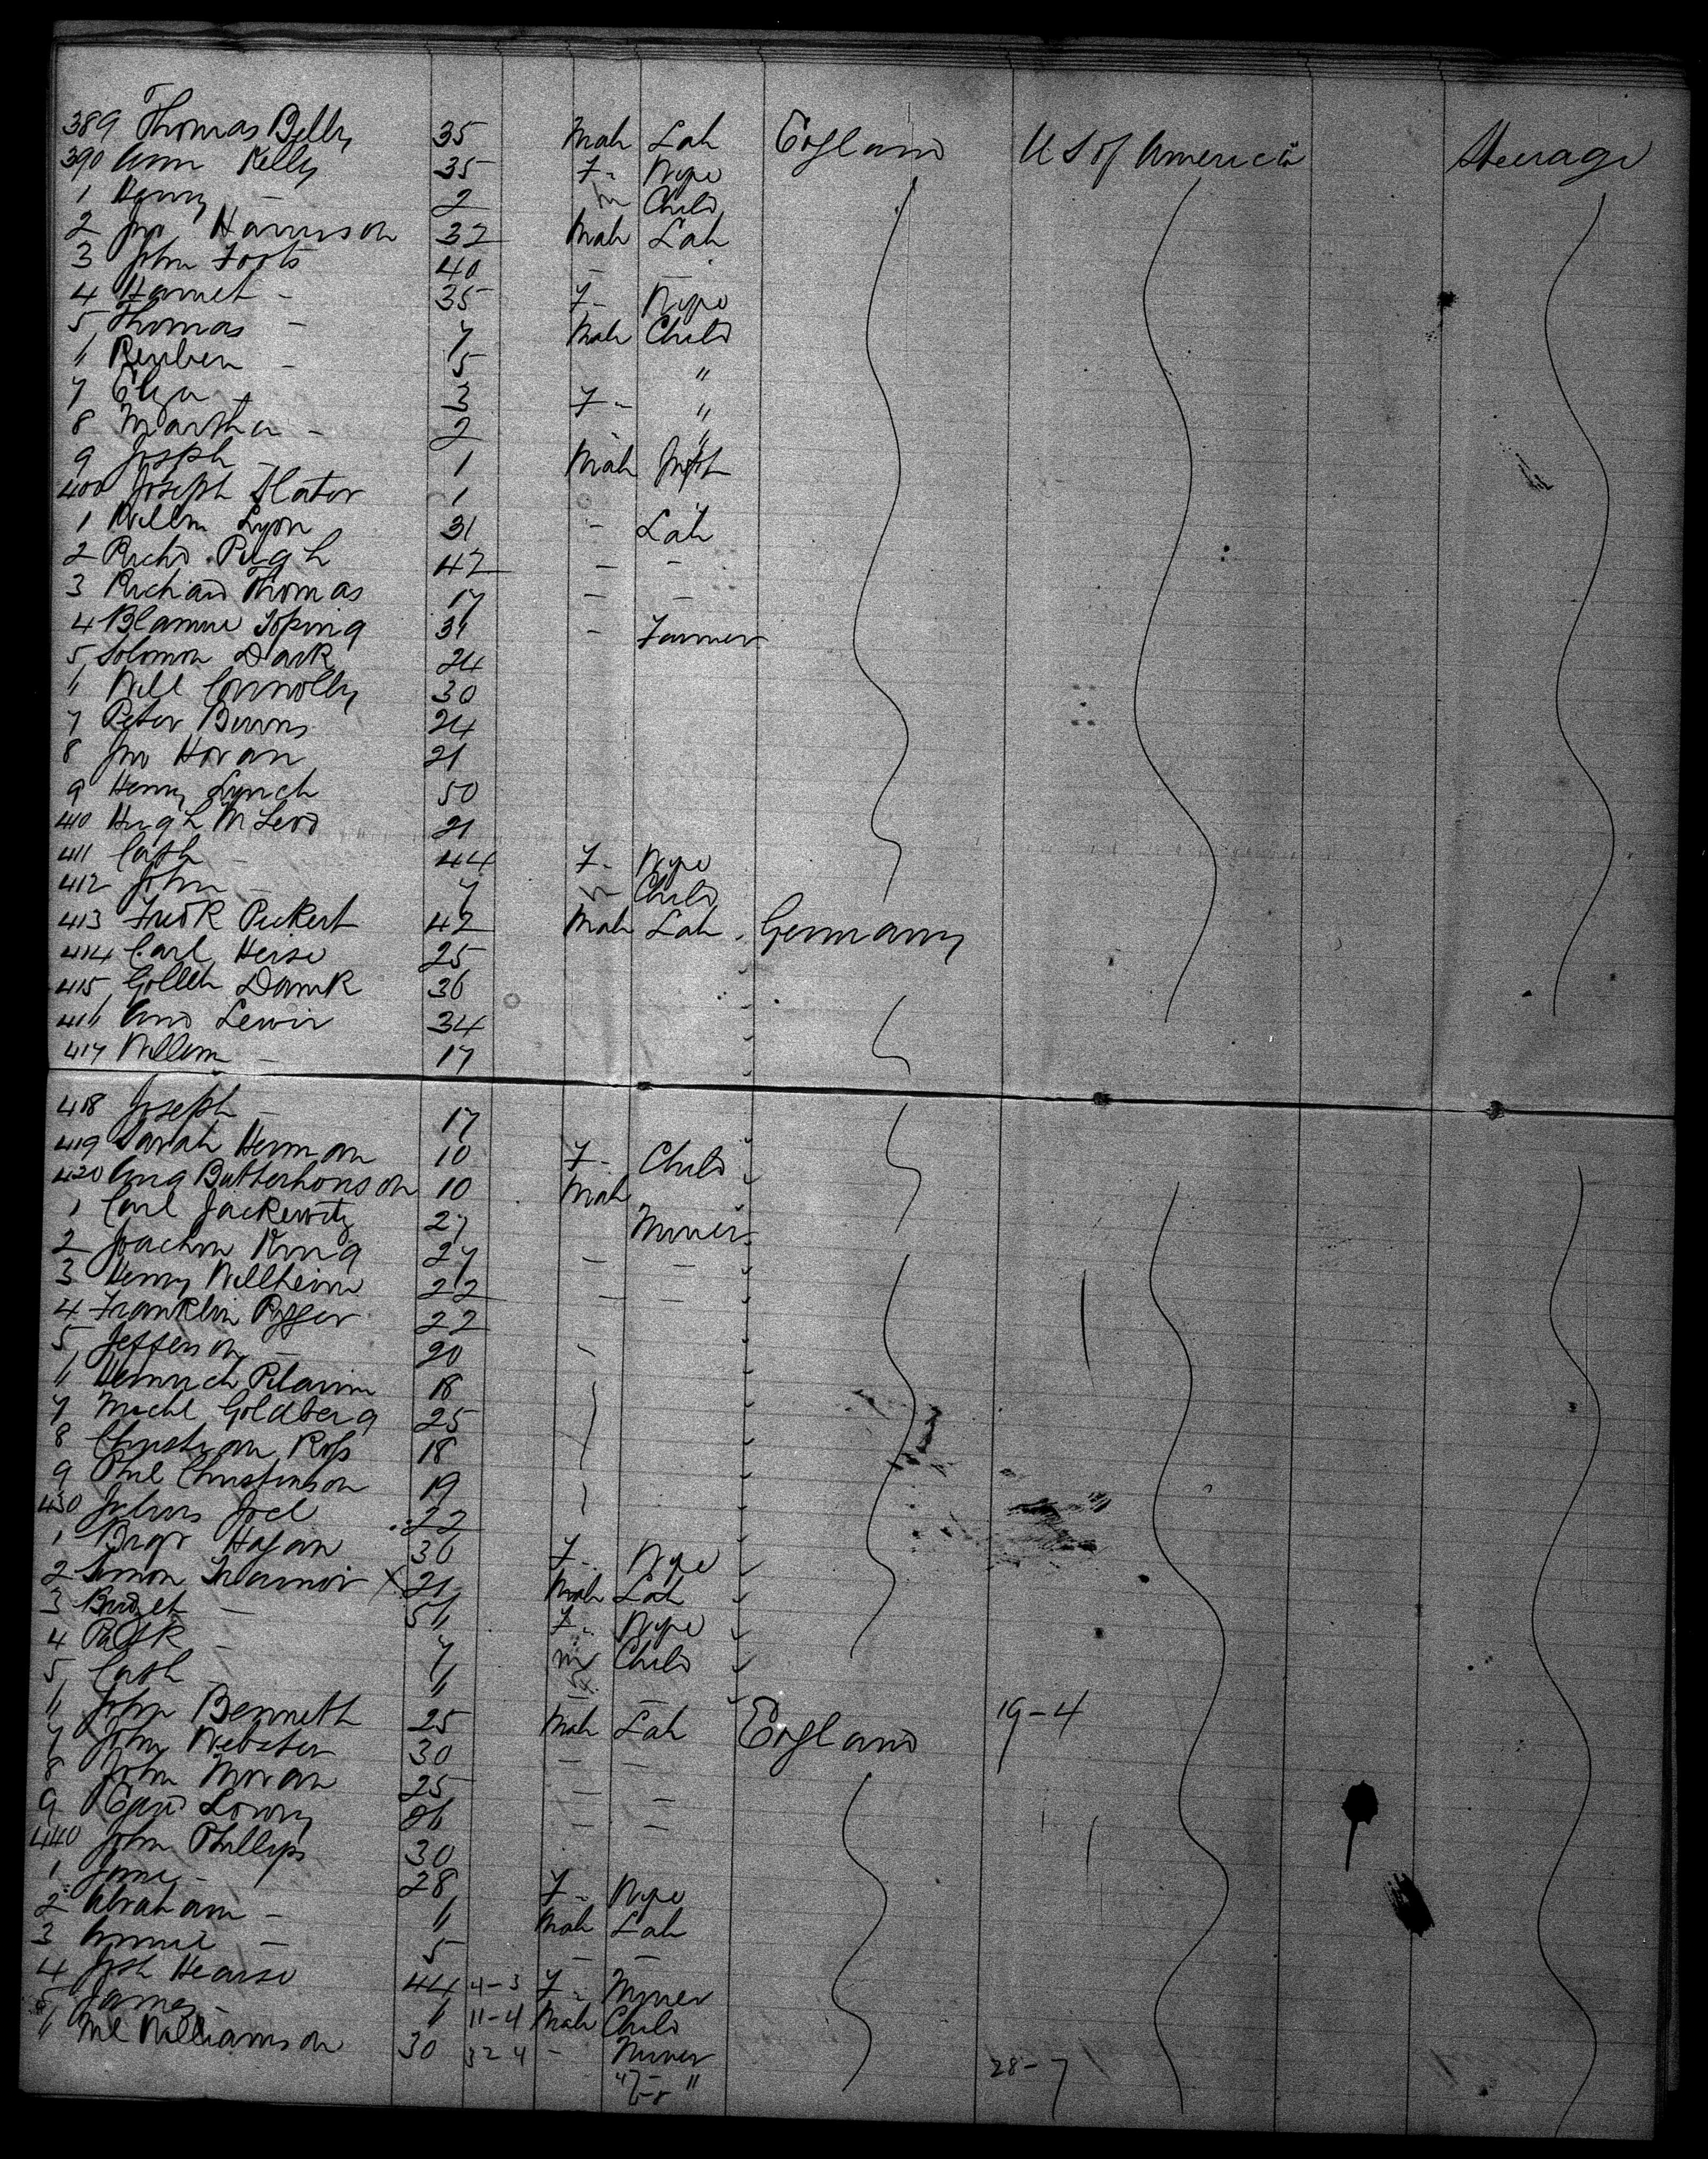 389 Thomas Belly 35 Male Lab England U S of America Steerage
390 Ann Kelly 35 F " Wife
1 Henry — 2 m Child
2 Jno Harrison 32 Male Lab
3 John Foots 40 — —
4 Harriet — 35 F — Wife
5 Thomas — 7 Male Child
6 Reuben — 5 "
7 Eliza — 3 F — "
8 Martha — 2 "
9 Joseph — 1 Male Inft
400 Joseph Slator 1
1 Willm Lyon 31 — Lab
2 Richd Pugh 42 — —
3 Richard Thomas 17 — —
4 Toping 31 — Farmer
5 Solomon Dark 24
6 Will Connolly 30
7 Peter Burns 24
8 Jno Horan 21
9 Henry Lynch 50
410 Hugh McLeod 21
411 Cath — 44 F — Wife
412 John — 7 m Child
413 Fredk Pickert 42 Male Lab Germany
414 Carl Heise 25
415 Damk 36
416 Lewir 34
417 Willem — 17
418 Joseph — 17
419 Sarah Herman 10 F — Child
420 Aug Butterhonson 10 Male
1 Carl Jackewitz 27 Miner
2 Joachim King 27 — —
3 Henry Willheim 22 — —
4 Franklin 22
5 Jefferson — 20
6 Heinrich Pilarim 18
7 Michl Goldberg 25
8 Christian Ross 18
9 Phil Christinson 19
430 Julius Joel 22
1 Hagan 30 F — Wife
2 Simon Trainor X 21 Male Lab
3 Bridget — 56 F " Wife
4 Patk — 7 m Child
5 Cath — 6 — —
6 John Bennett 25 Male Lab England 19-4
7 John Webster 30 — —
8 John Moran 25 — —
9 Lowry 26 — —
440 John Phillips 30
1 Jane — 28 F — Wife
2 Abraham — 6 Male Lab
3 Annie — 5 — —
4 Josh Hearse 44 4-3 F " Miner
5 James — 6 11-4 Male Child
6 Ml Williamson 30 32 4 — Miner
28-7